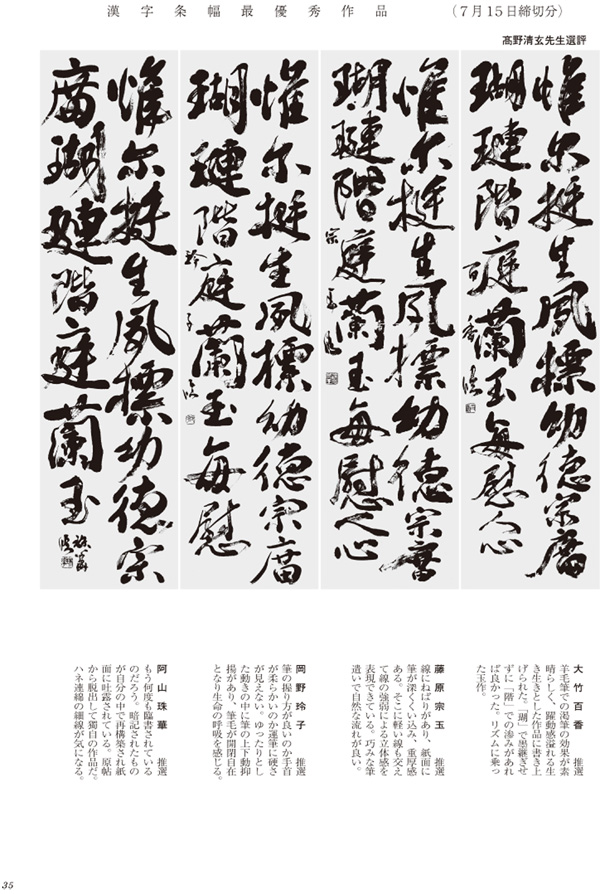 漢字条幅最優秀作品
(7月15日締切分)
髙野清玄先生選評
惟尔挺生夙標幼徳宗廟
瑚璉階庭蘭玉毎慰人心
惟尔挺生夙標幼徳宗廟
瑚璉階庭蘭玉毎慰人心
宗玉臨
惟尔挺生夙標幼徳宗廟
瑚璉階庭蘭玉毎慰
玲子臨
惟尔挺生夙標幼徳宗
廟瑚璉階庭蘭玉
珠華臨
大竹百香 推選
羊毛筆での渇筆の効果が素
晴らしく、躍動感溢れる生
き生きとした作品に書き上
げられた。「瑚」で墨継ぎせ
ずに「階」での滲みがあれ
ば良かった。リズムに乗っ
た玉作。
藤原宗玉 推選
線にねばりがあり、紙面に
筆が深くくい込み、重厚感
ある。そこに軽い線も交え
て線の強弱による立体感を
表現できている。巧みな筆
遣いで自然な流れが良い。
岡野玲子 推選
筆の握り方が良いのか手首
が柔らかいのか運筆に硬さ
が見えない。ゆったりとし
た動きの中に筆の上下動抑
揚があり、筆毛が開閉自在
となり生命の呼吸を感じる。
阿山珠華 推選
もう何度も臨書されている
のだろう。暗記されたもの
が自分の中で再構築され紙
面に吐露されている。原帖
から脱出して独自の作品だ。
ハネ連綿の細線が気になる。
35